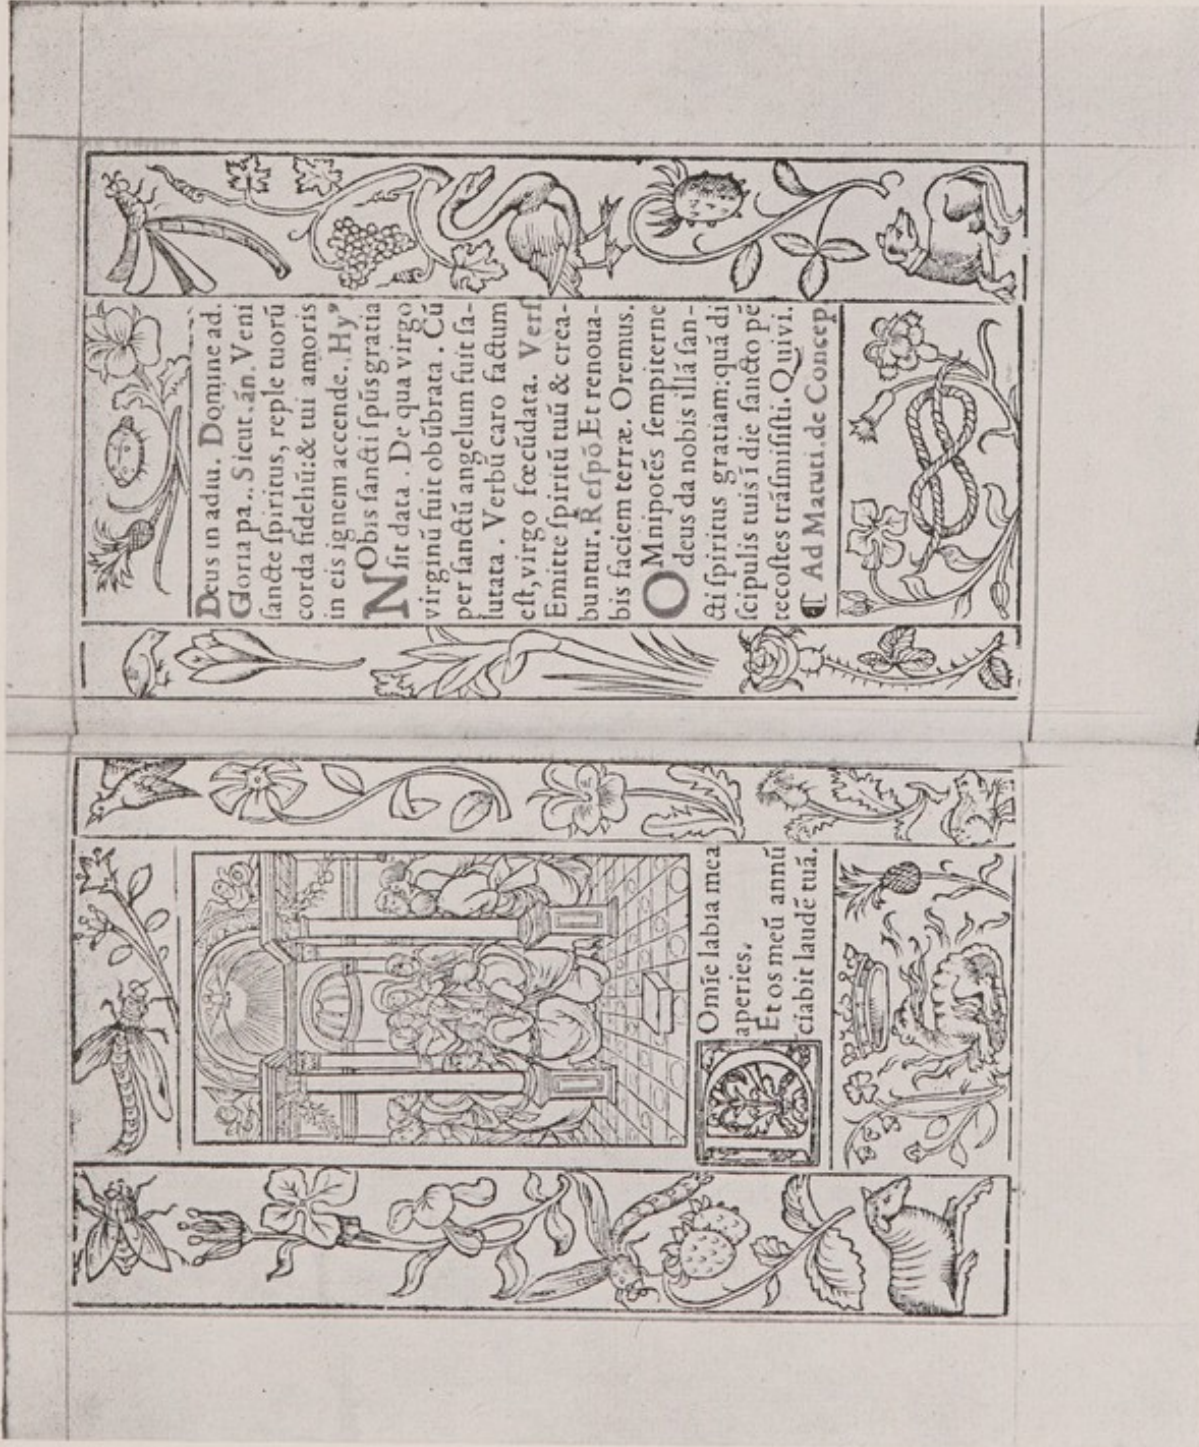 Omīe labia mea
aperies.
Et os meū annū
ciabit laudē tuā.
Deus in adiu. Domine ad.
Gloria pa.. Sicut .ān. Veni
ſancte ſpiritus, reple tuorū
corda fidelıū:& tui amoris
in eis ignem accende. Hyᵒ
NObis ſancti ſpūs gratia
ſit data . De qua virgo
virginū fuit obūbrata . Cū
per ſanctū angelum fuit ſa-
lutata . Verbū caro factum
eſt, virgo fœcūdata. Verſ.
Emitte ſpiritū tuū & crea-
buntur. Reſpō Et renoua-
bis faciem terræ. Oremus.
OMnipotēs ſempiterne
deus da nobis illā ſan-
cti ſpiritus gratiam:quā di
ſcipulis tuis ī die ſancto pē
tecoſtes trāſmiſiſti. Qui vi.
¶ Ad Matuti. de Concep